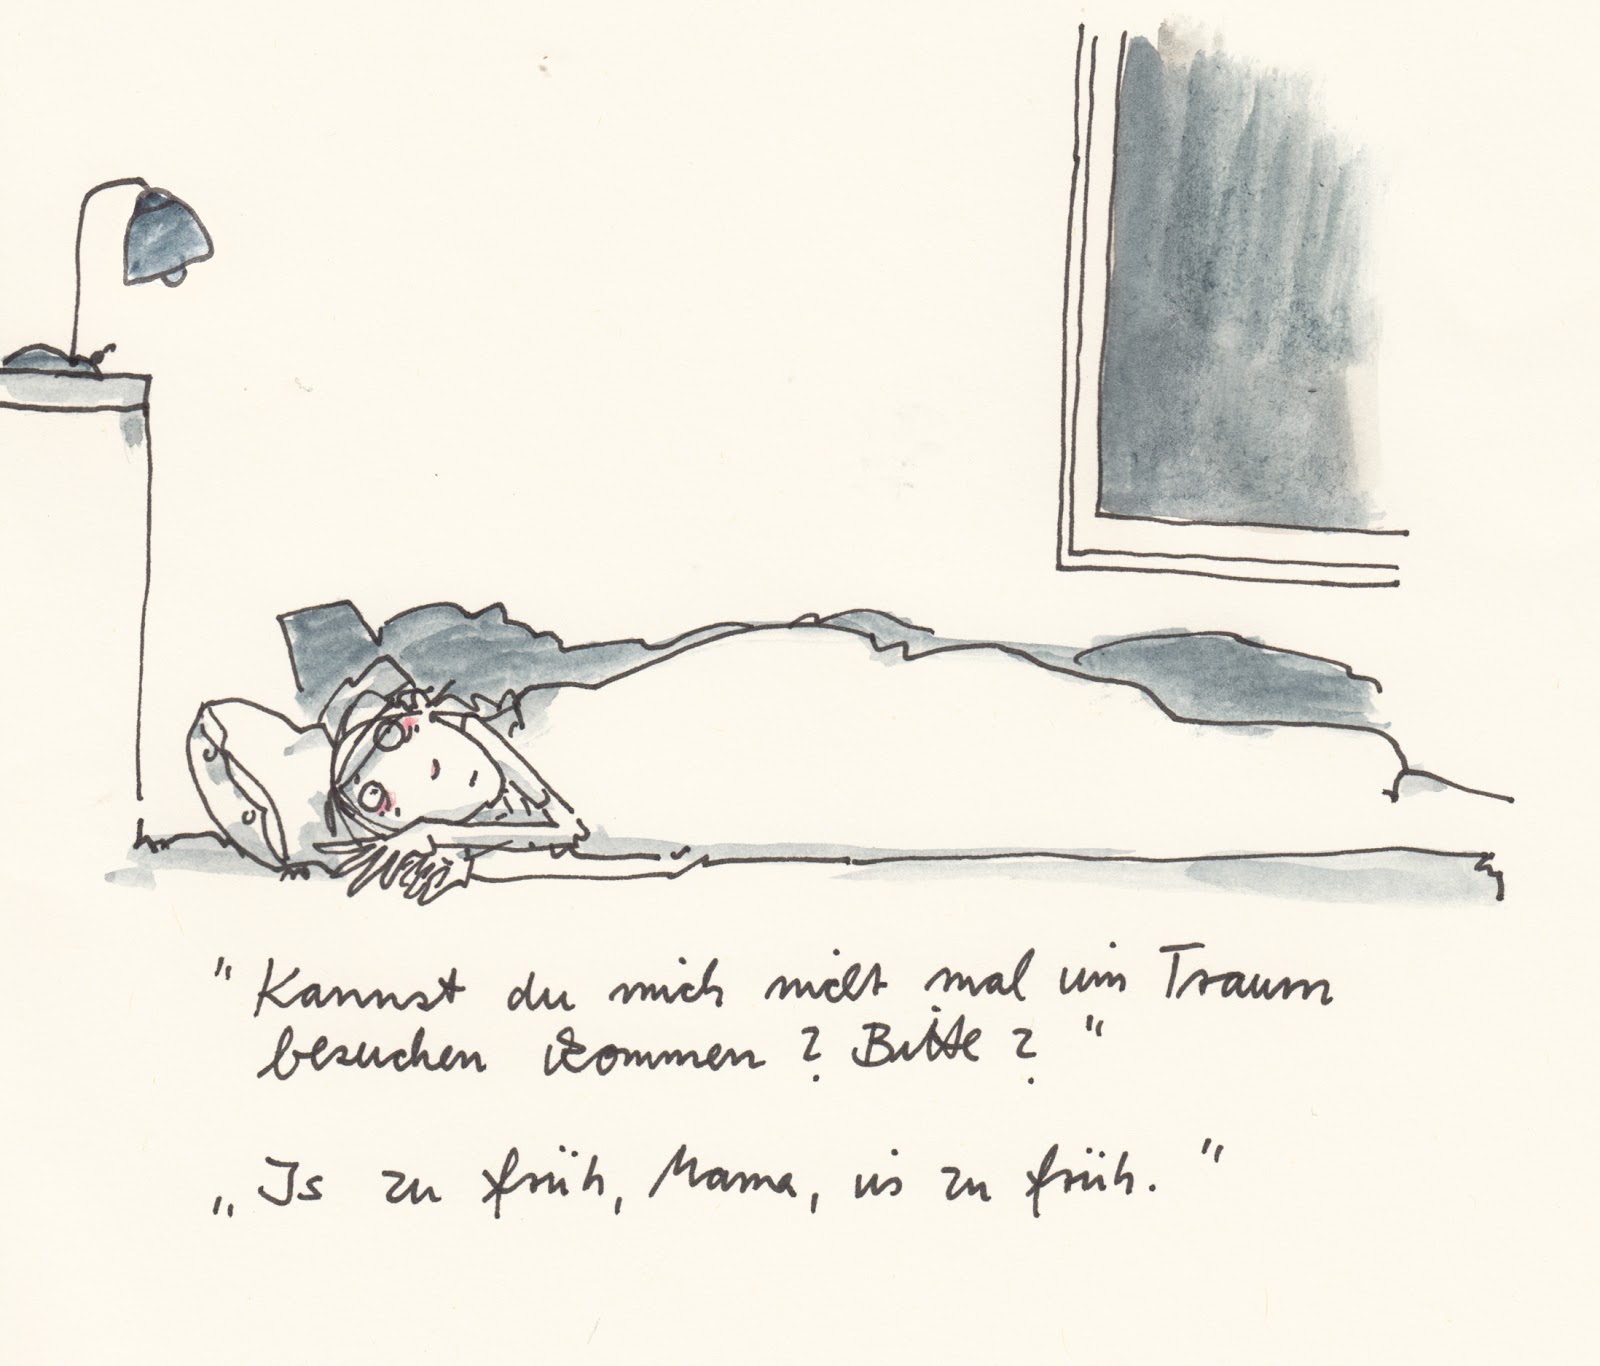 "Kannst du mich nicht mal im Traum
besuchen kommen? Bitte?"
„Is zu früh, Mama, is zu früh."